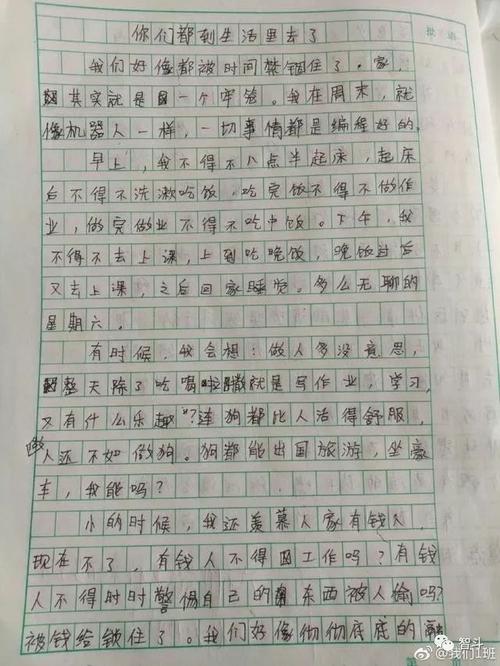 你们都到生活里去了
我们好像都被时间禁锢住了。家，
其实就是一个牢笼。我在周末，就
像机器人一样，一切事情都是编程好的。
早上，我不得不八点半起床，起床
后不得不洗漱吃饭，吃完饭不得不做作
业，做完做业不得不吃中饭。下午，我
不得不去上课，上到吃晚饭，晚饭过后
又去上课，之后回家睡觉。多么无聊的
星期六。
有时候，我会想：做人多没意思，
整天除了吃喝拉撒就是写作业，学习，
又有什么乐趣？连狗都比人活得舒服，
做人还不如做狗。狗都能出国旅游，坐豪
车，我能吗？
小的时候，我还羡慕人家有钱人，
现在不了，有钱人不得工作吗？有钱
人不得时时警惕自己的东西被人偷吗？
被钱给锁住了。我们好像彻彻底底的
智斗
@我们1班